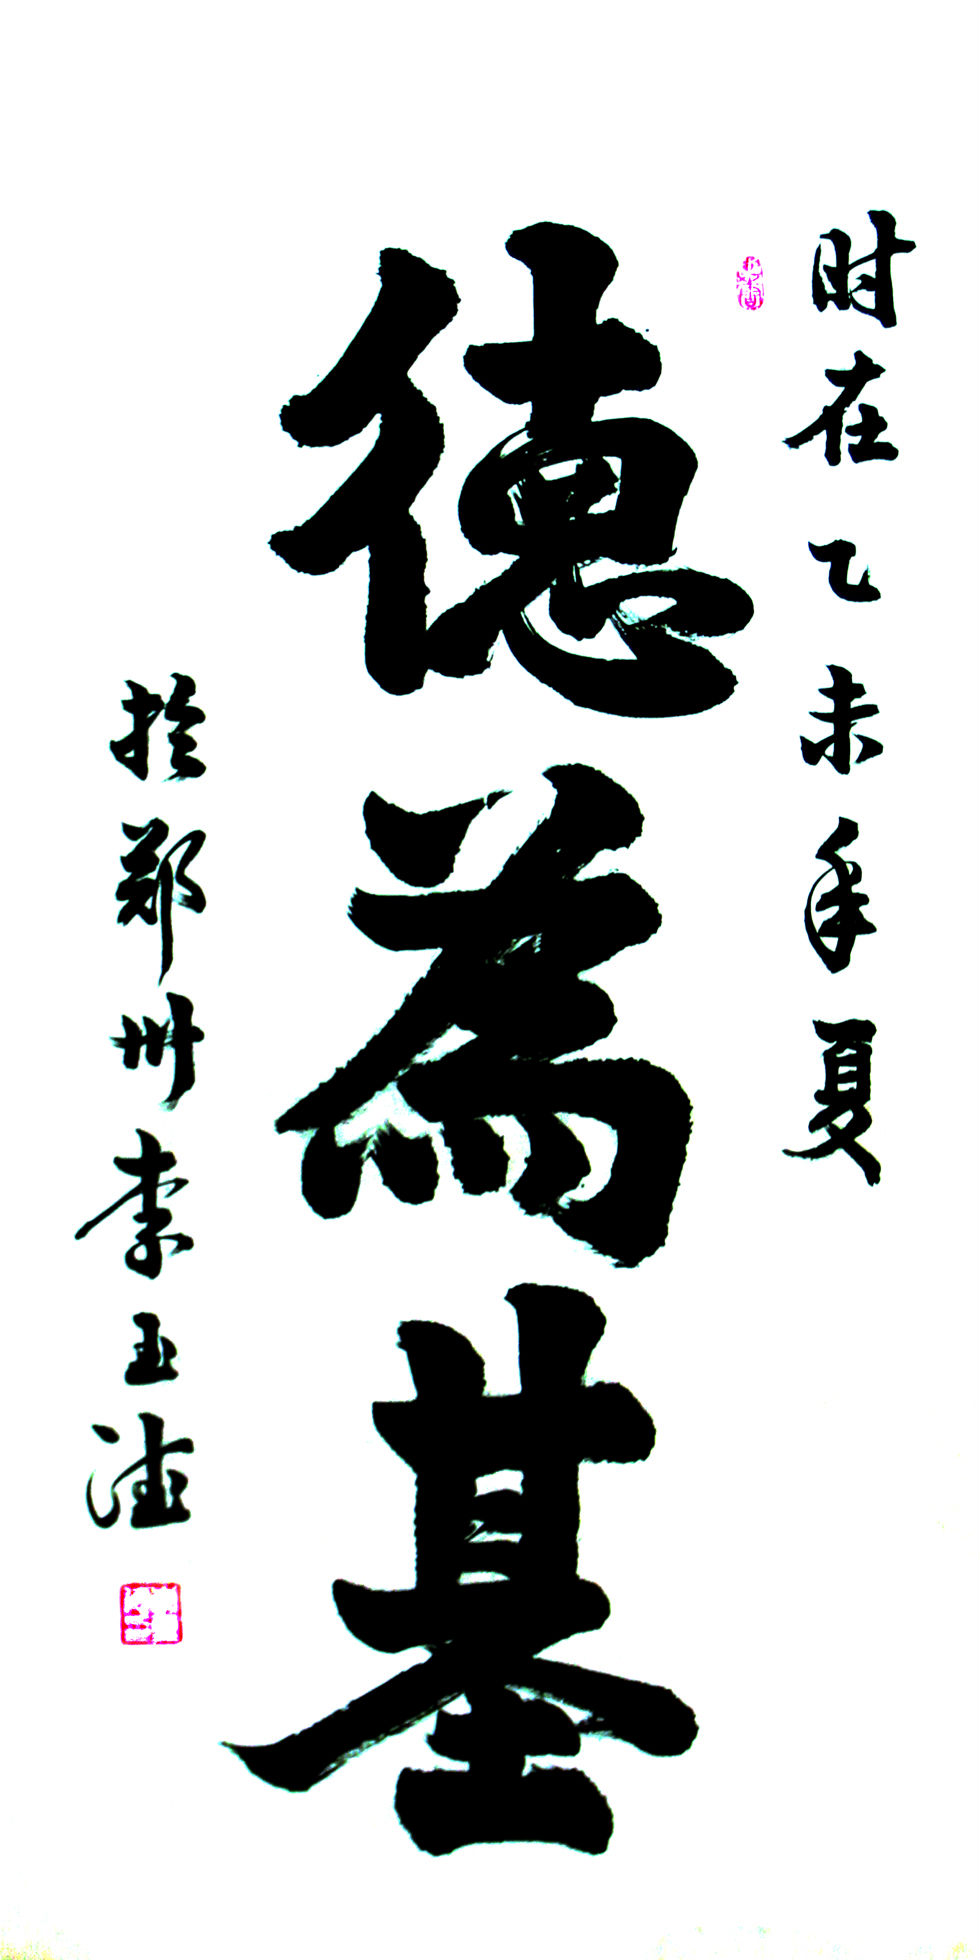 时在乙未年夏
德为基
于郑州李玉洼